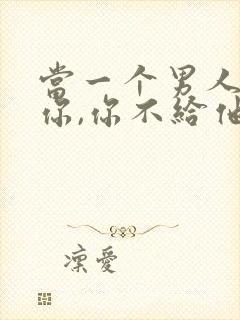 當一个男人
你,你不給他
凜愛